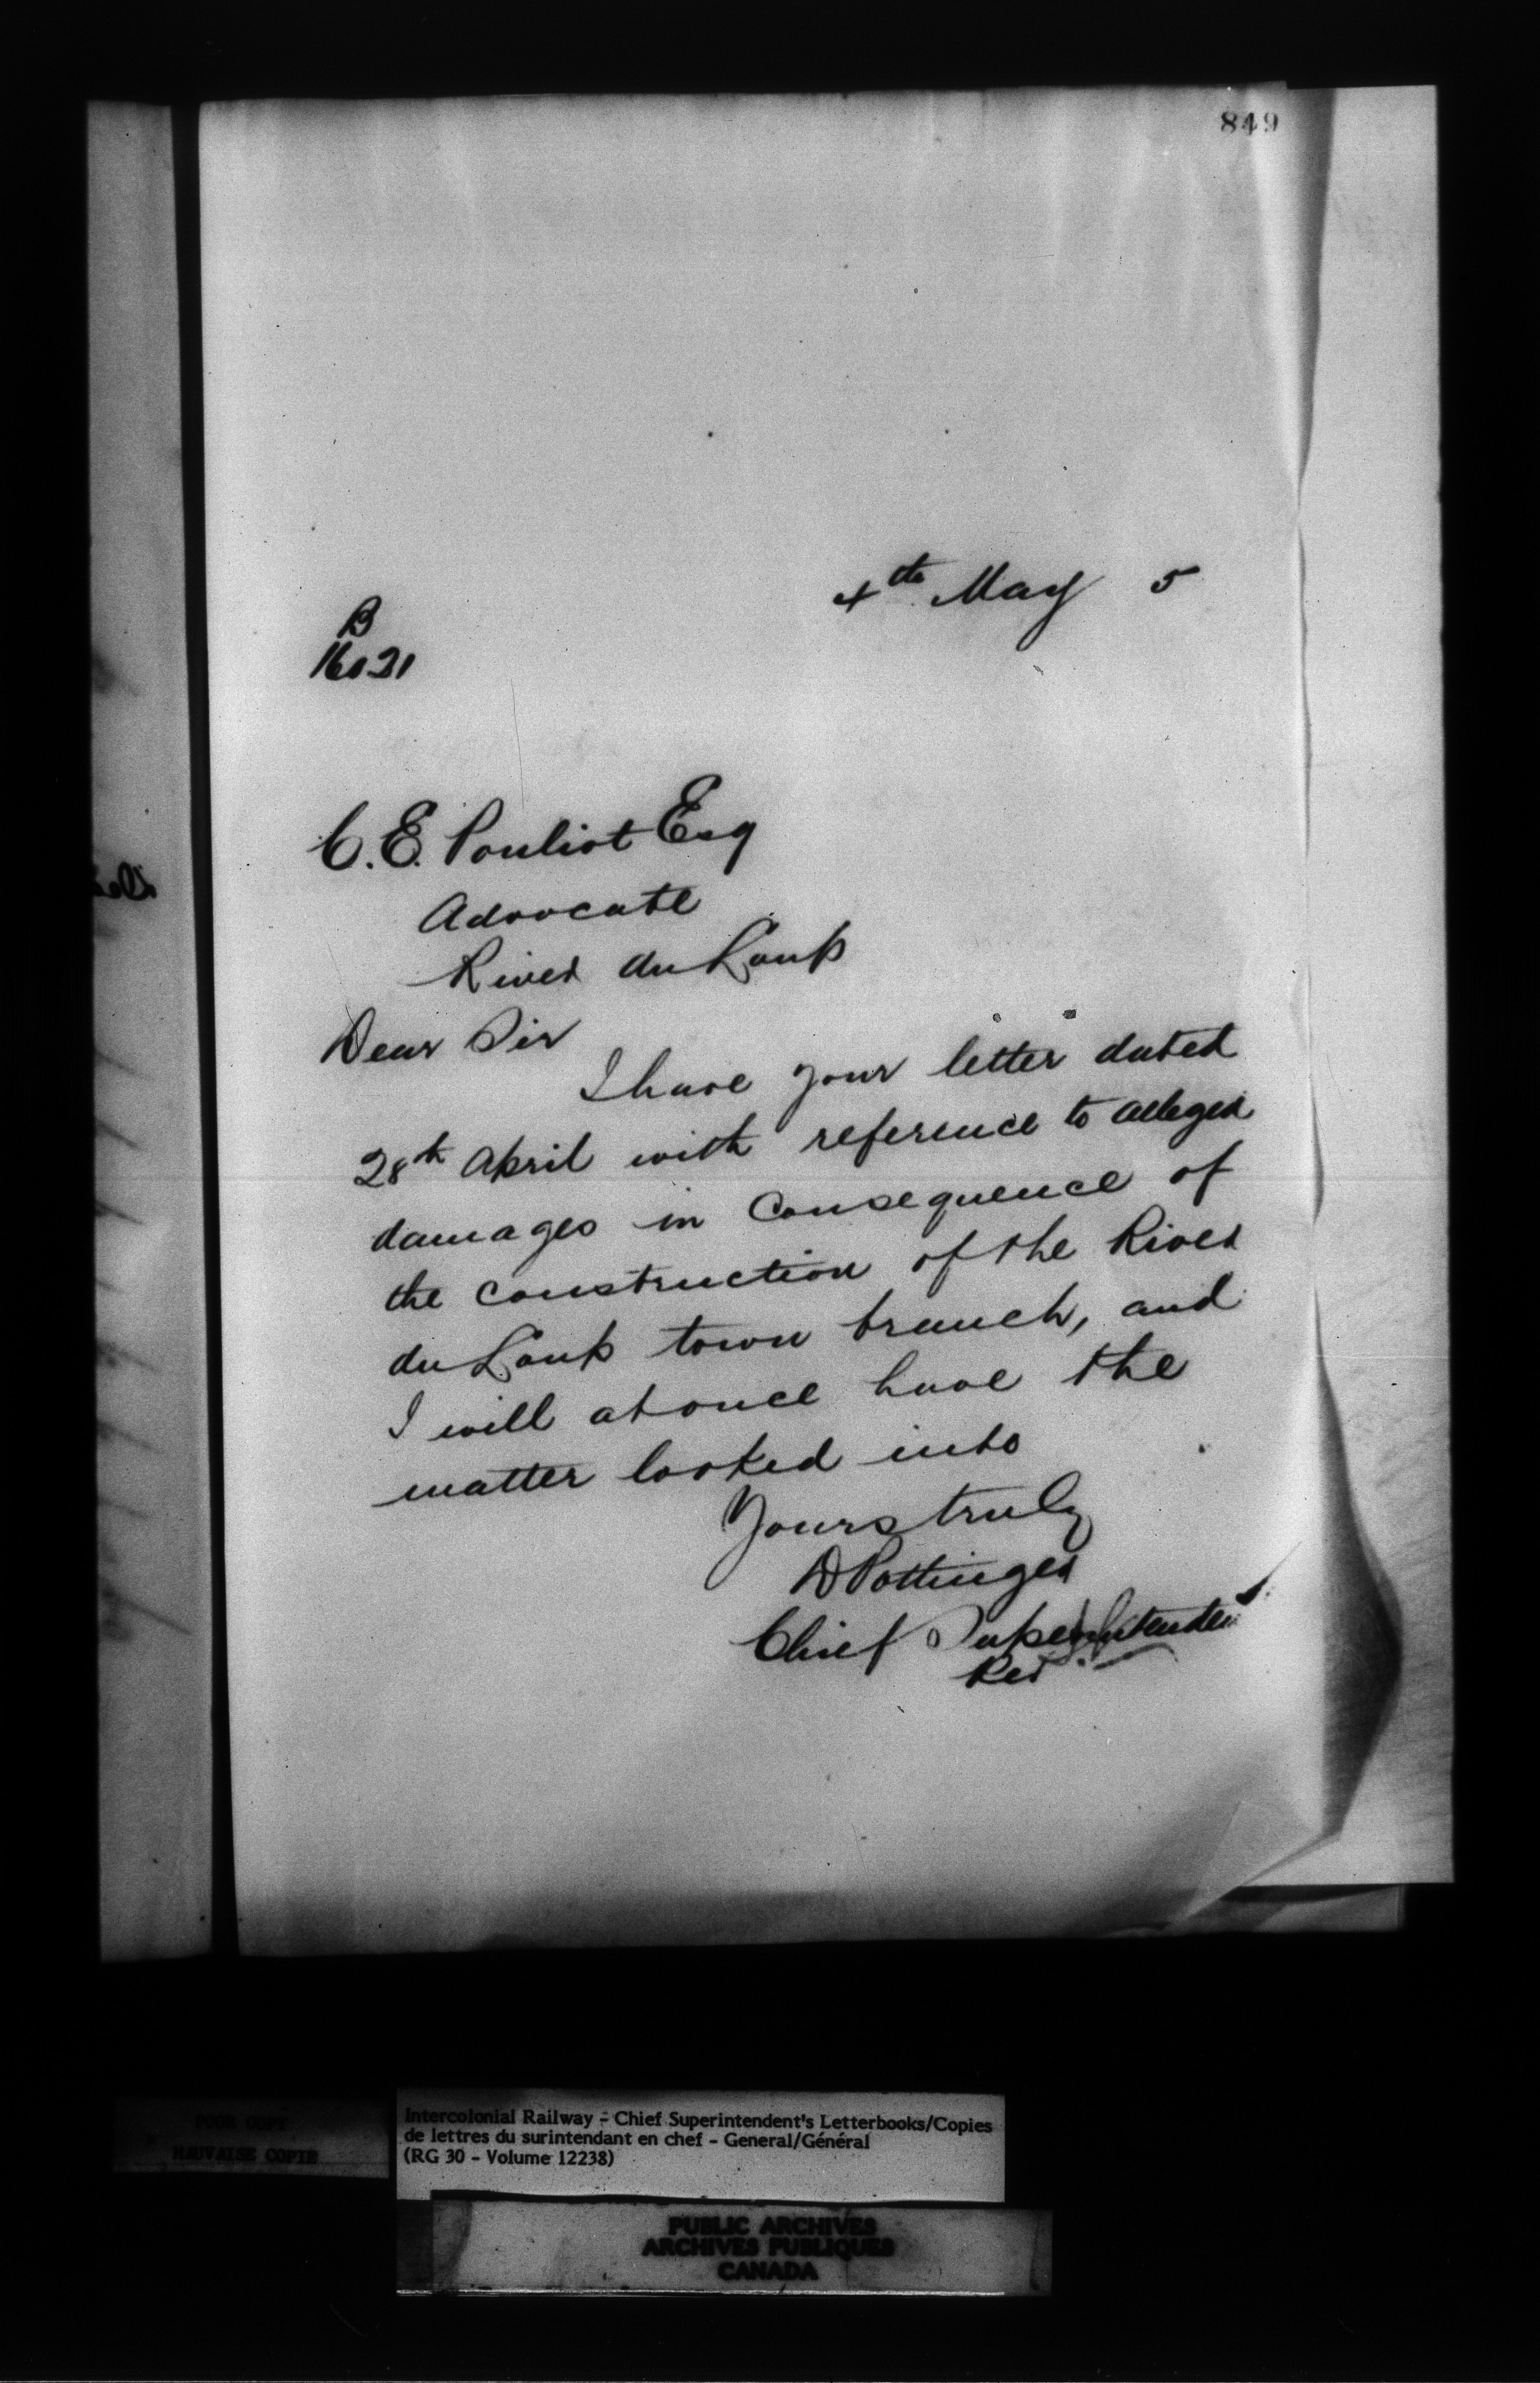 849
4th May 5
B
16021
C. E. Pouliot Esq
Advocate
River du Loup
Dear Sir
I have your letter dated
28th April with reference to alleged
damages in Consequence of
the construction of the River
du Loup town branch, and
I will at once have the
matter looked into
Yours truly
D Pottinger
Chief Superintendent
POOR COPY
MAUVAISE COPIE
Intercolonial Railway - Chief Superintendent's Letterbooks/Copies
de lettres du surintendant en chef - General/Général
(RG 30 - Volume 12238)
PUBLIC ARCHIVES
ARCHIVES PUBLIQUES
CANADA